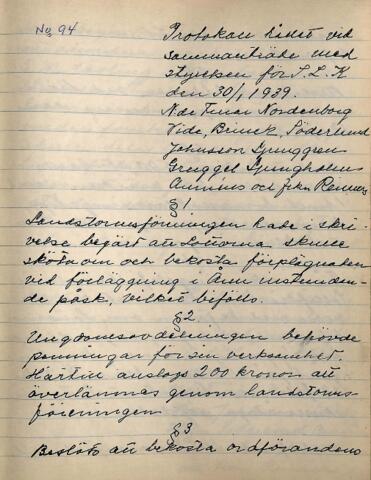 No 94
Protokoll hållet vid
sammanträde med
styrelsen för S.L.K
den 30/1 1939.
Nordenborg
Vide, Brinck, Söderlund
Johnsson Ljunggren
Gruggel Ljungholm
och frkn Reimers
§1
Landstormsföreningen hade i skri-
velse begärt att Lottorna skulle
sköta om och bekosta förplägnaden
vid förläggning i Ånn instunden-
de påsk, vilket bifölls.
§2
Ungdomsavdelningen behövde
penningar för sin verksamhet.
Härtill anslogs 200 kronor att
överlämnas genom landstorms-
föreningen
§3
Beslöts att bekosta ordförandens